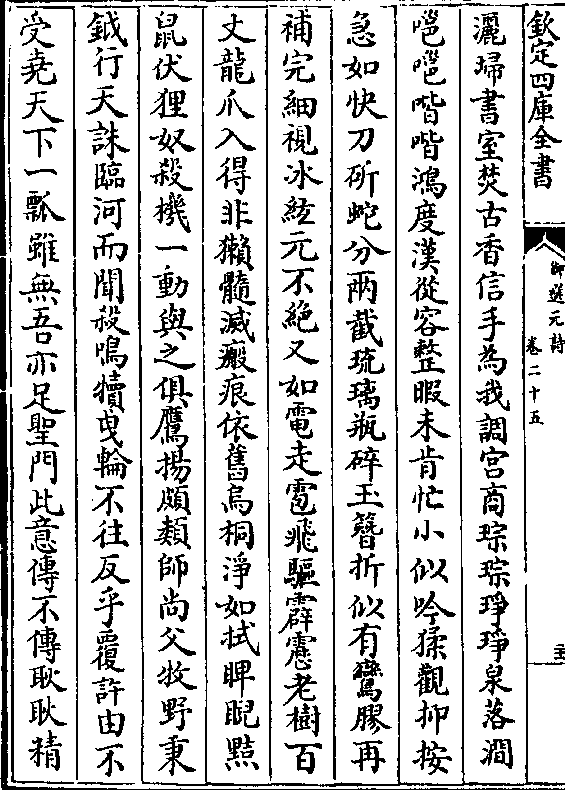 欽定四庫全書
御選元詩
卷二十五
灑埽書室焚古香信手為我調宮商琮琮琤琤泉落澗
嗈嗈喈喈鴻度漢從容整暇未肯忙小似吟猱觀抑按
急如快刀斫蛇分兩截琉璃瓶碎玉簪折似有鸞膠再
補完細視冰絃元不絕又如電走雹飛驅霹靂老樹百
丈龍爪入得非獺髓滅瘢痕依舊烏桐淨如拭睥睨㸃
鼠伏狸奴殺機一動與之俱鷹揚頗纇師尚父牧野秉
鉞行天誅臨河而聞殺鳴犢曳輪不往反乎覆許由不
受堯天下一瓢雖無吾亦足聖門此意傳不傳耿耿精